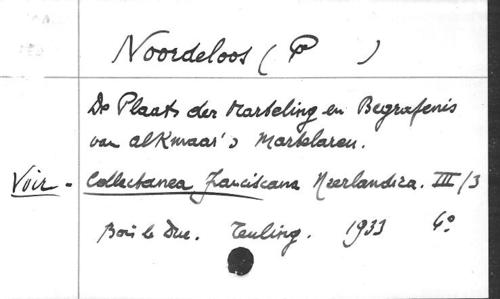 Noordeloos (P )
De Plaats der Marteling en Begrafenis
van Alkmaar's Martelaren.
Voir - Collectanea Franciscana Neerlandica. III/3
Bois le Duc. Teuling. 1933 4°